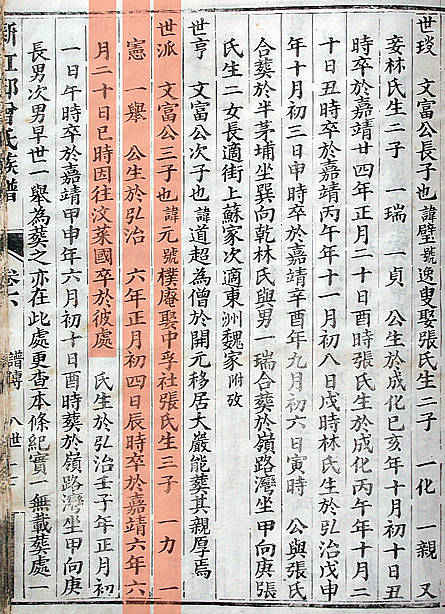 世琰 文富公長子也諱璧號逸叟娶張氏生二子 一化 一親 又
妾林氏生二子 一瑞 一貞 公生於成化己亥年十月初十日丑
時卒於嘉靖廿四年正月二十日酉時張氏生於成化丙午年十月二
十日丑時卒於嘉靖丙午年十一月初八日戌時林氏生於弘治戊申
年十月初三日申時卒於嘉靖辛酉年九月初六日寅時 公與張氏
合葬於半茅埔坐巽向乾林氏與男一瑞合葬於嶺路灣坐甲向庚張
氏生二女長適街上蘇家次適東洲魏家附攷
世亨 文富公次子也諱道超為僧於開元移居大嚴能葬其親厚焉
世派 文富公三子也諱元號樸庵娶中孚社張氏生三子 一力 一
憲 一舉 公生於弘治 六年正月初四日辰時卒於嘉靖六年六
月二十日巳時因往汶萊國卒於彼處 氏生於弘治壬子年正月初
一日午時卒於嘉靖甲申年六月初十日酉時葬於嶺路灣坐甲向庚
長男次男早世一舉為葬之亦在此處更查本條紀實一無載葬處一
曾氏族譜 卷六 譜傳 八世